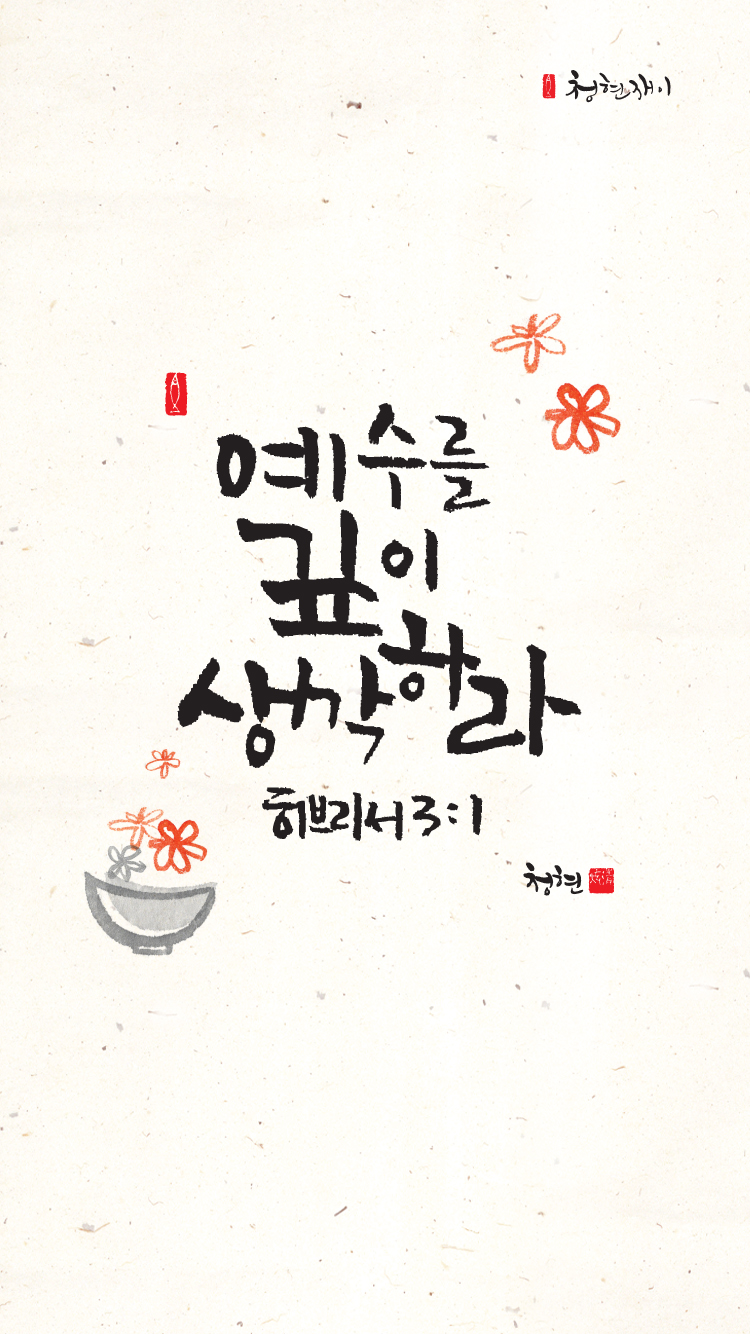 청현재이
예수를
깊이
생각하라
히브리서 3:1
청현